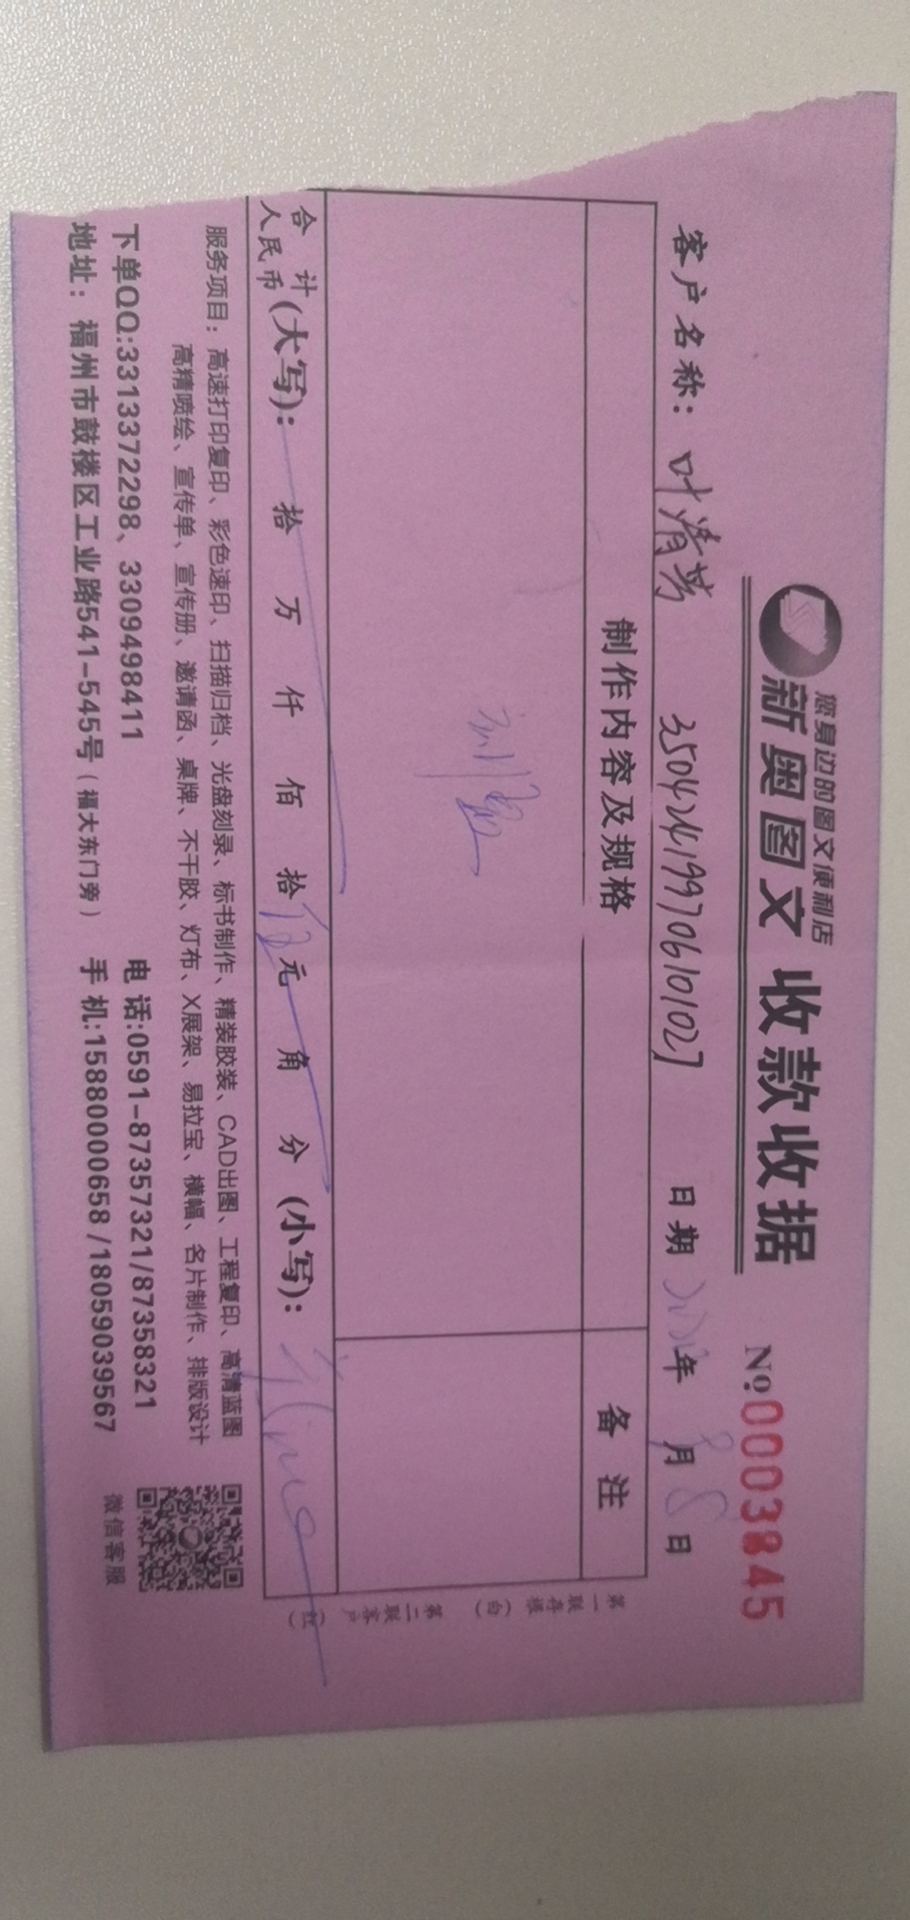 您身边的图文便利店
新奥图文 收款收据
No.0003845
客户名称：叶清芳 350424199706101027 日期 年 8月8日
制作内容及规格 备注
刻章
合计人民币(大写)：拾 万 仟 佰 拾 伍元 角 分 (小写)：
第一联存根(白) 第二联客户(红)
服务项目：高速打印复印、彩色速印、扫描归档、光盘刻录、标书制作、精装胶装、CAD出图、工程复印、高清蓝图
高精喷绘、宣传单、宣传册、邀请函、桌牌、不干胶、灯布、X展架、易拉宝、横幅、名片制作、排版设计
下单QQ:3313372298、3309498411 电话:0591-87357321/87358321
地址：福州市鼓楼区工业路541-545号（福大东门旁） 手机:15880000658 /18059039567
微信客服